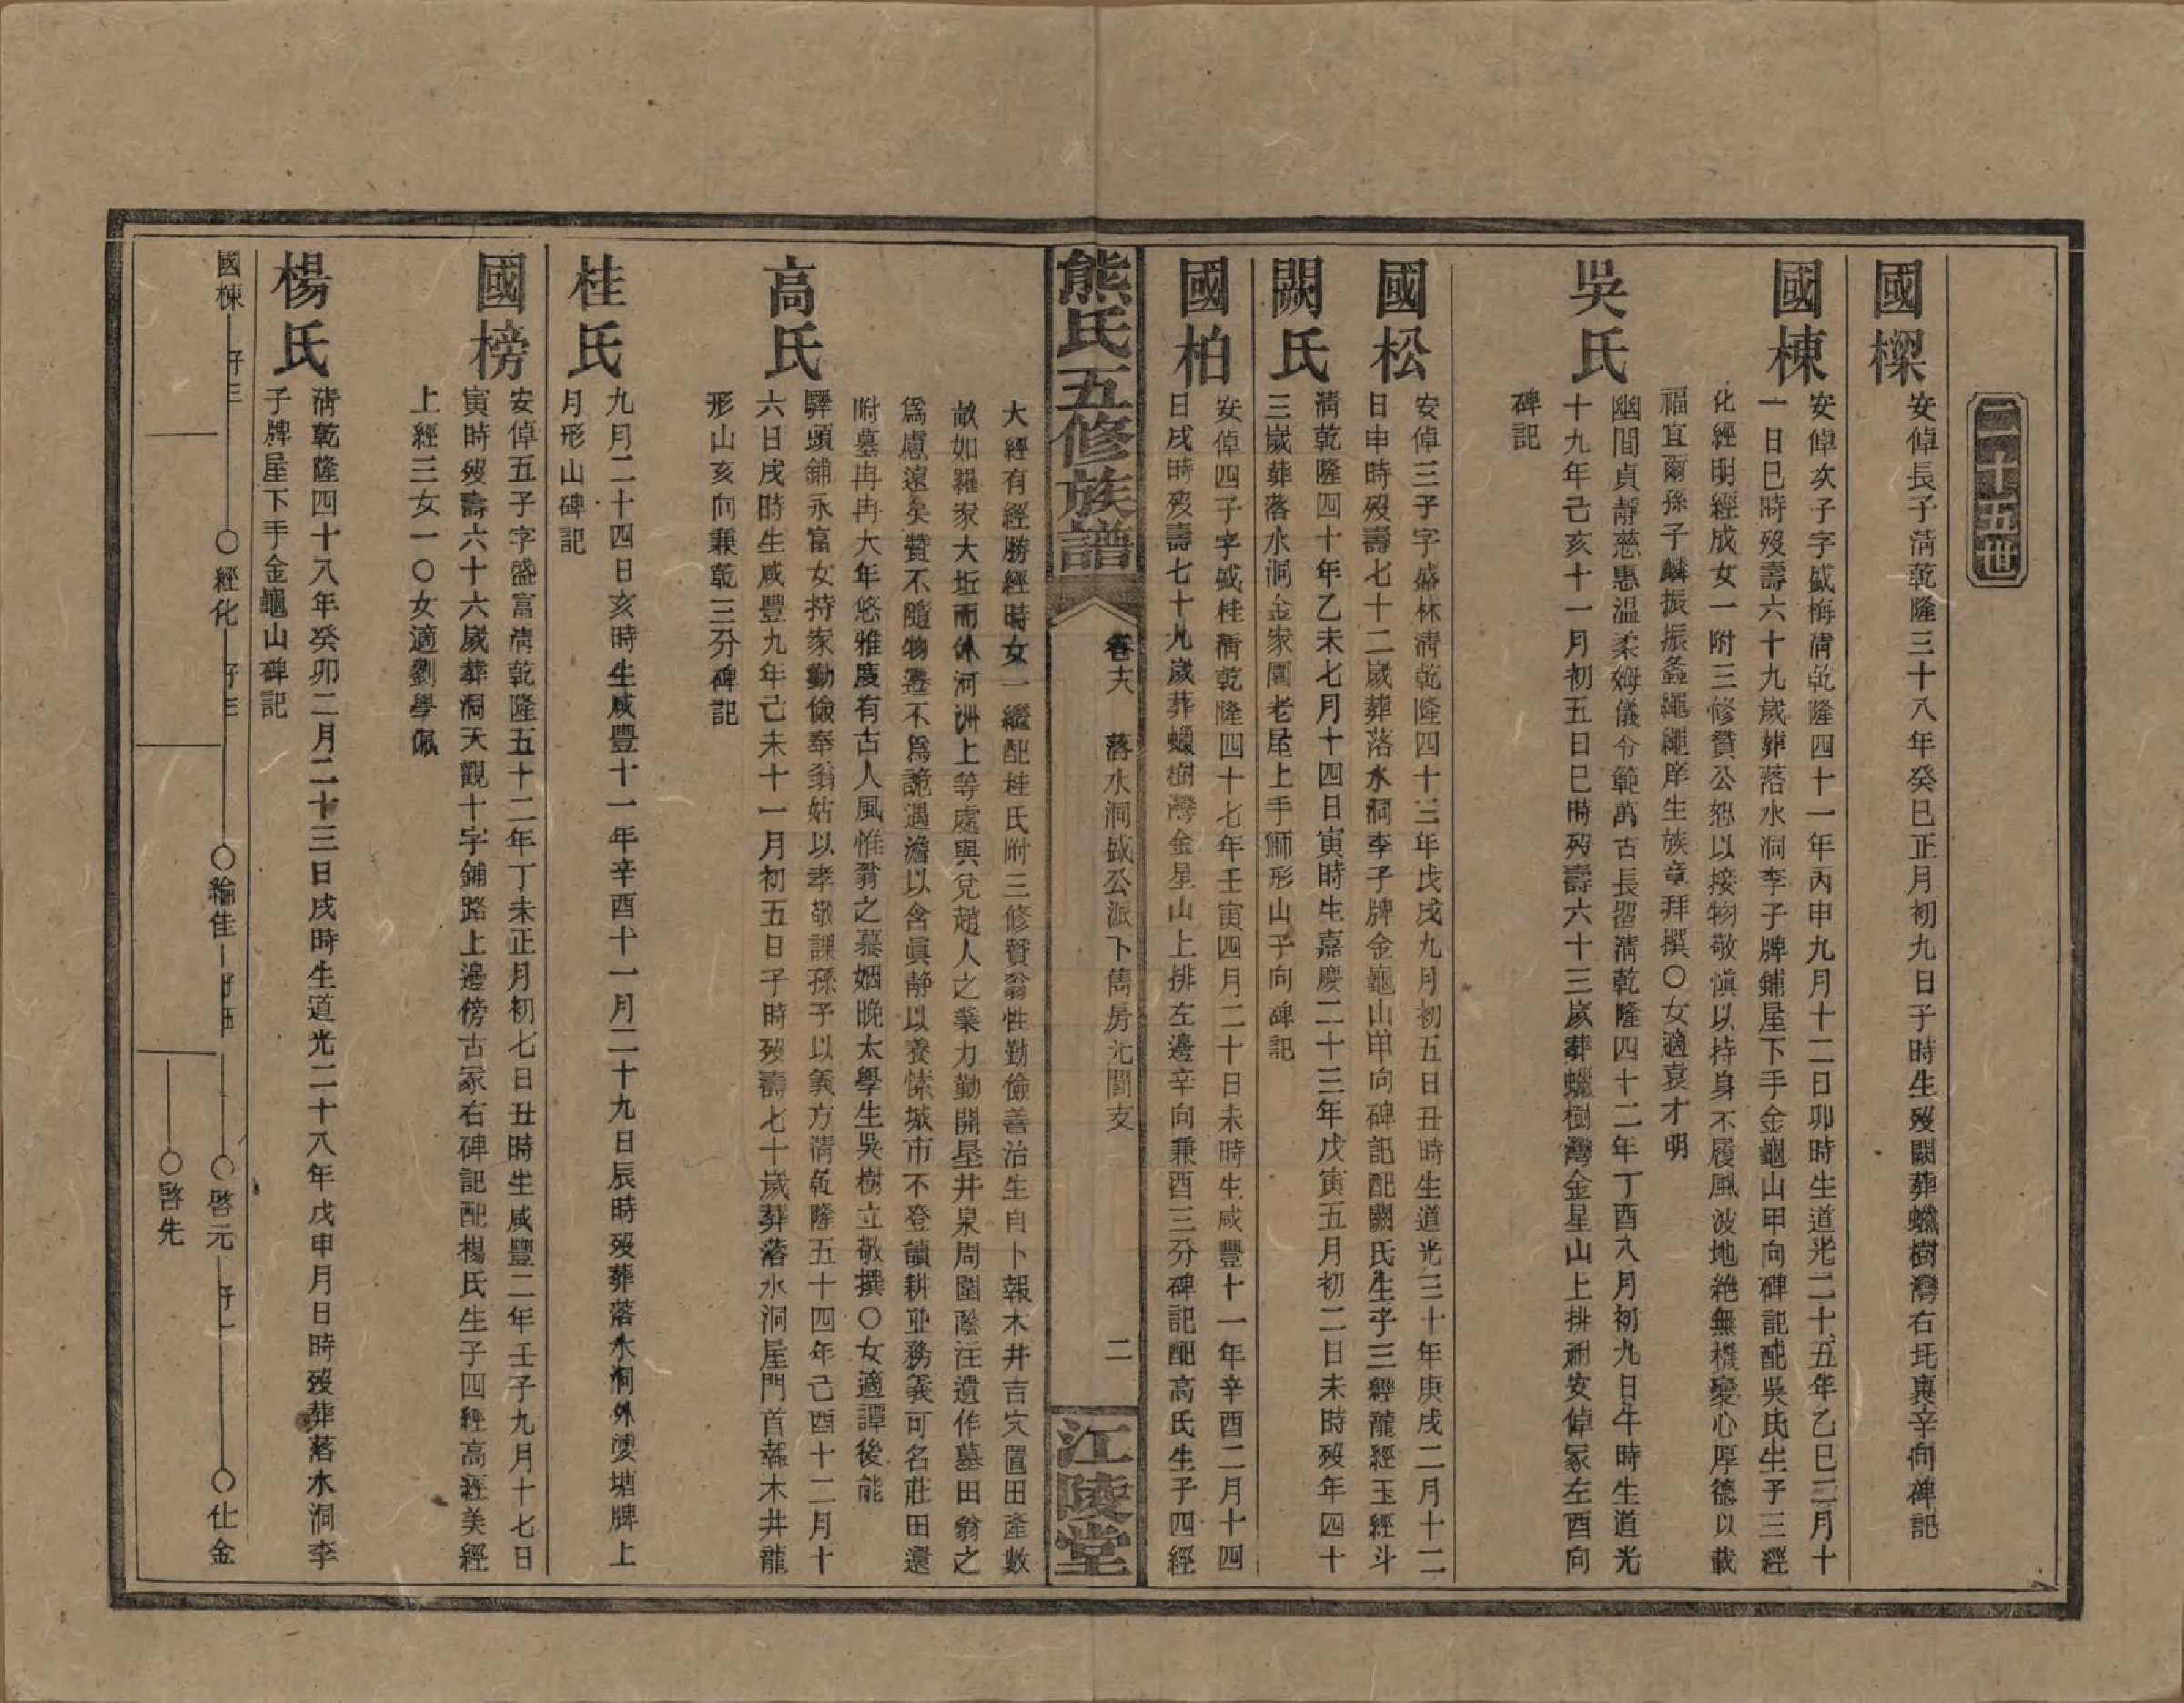 二十五世
國樑
安倬長子淸乾隆三十八年癸巳正月初九日子時生歿闕葬蠟樹灣右坉裏辛向碑記
國棟
安倬次子字盛梅淸乾隆四十一年丙申九月十二日卯時生道光二十五年乙巳三月十
一日巳時歿壽六十九歲葬落水洞李子牌鋪屋下手金龜山甲向碑記配吳氏生子三經
化經明經成女一附三修贊公恕以接物敬愼以持身不履風波地絶無機變心厚德以載
福宜爾孫子麟振振螽繩繩庠生族章拜撰〇女適袁才明
吳氏
幽閒貞靜慈惠温柔姆儀令範萬古長畱淸乾隆四十二年丁酉八月初九日午時生道光
十九年己亥十一月初五日巳時歿壽六十三歲葬蠟樹灣金星山上排祔安倬冢左酉向
碑記
國松
安倬三子字盛林淸乾隆四十三年戊戌九月初五日丑時生道光三十年庚戌二月十二
日申時歿壽七十二歲葬落水洞李子牌金龜山甲向碑記配闕氏生子三經龍經玉經斗
闕氏
淸乾隆四十年乙未七月十四日寅時生嘉慶二十三年戊寅五月初二日未時歿年四十
三歲葬落水洞金家園老屋上手獅形山子向碑記
國柏
安倬四子字盛桂淸乾隆四十七年壬寅四月二十日未時生咸豐十一年辛酉二月十四
日戌時歿壽七十九歲葬蠟樹灣金星山上排左邊辛向兼酉三分碑記配高氏生子四經
熊氏五修族譜
卷十六　落水洞盛公派下儁房光閭支
二
江陵堂
大經有經勝經時女一繼配桂氏附三修贊翁性勤儉善治生自卜報木井吉穴置田產數
畝如羅家大坵兩休河洲上等處與兌趙人之業力勤開墾井泉周圍蔭注遺作墓田翁之
爲慮遠矣贊不隨物遷不爲詭遇澹以含眞靜以養愫城市不登讀耕並務義可名莊田還
附墓冉冉大年悠雅度有古人風惟翁之慕姻晚太學生吳樹立敬撰〇女適譚後能
高氏
驛頭鋪永富女持家勤儉奉翁姑以孝敬課孫子以義方淸乾隆五十四年己酉十二月十
六日戌時生咸豐九年己未十一月初五日子時歿壽七十歲葬落水洞屋門首報木井龍
形山亥向兼乾三分碑記
桂氏
九月二十四日亥時生咸豐十一年辛酉十一月二十九日辰時歿葬落水洞外㳺塘牌上
月形山碑記
國榜
安倬五子字盛富淸乾隆五十二年丁未正月初七日丑時生咸豐二年壬子九月十七日
寅時歿壽六十六歲葬洞天觀十字鋪路上邊傍古冢右碑記配楊氏生子四經高經美經
上經三女一〇女適劉學佩
楊氏
淸乾隆四十八年癸卯二月二十三日戌時生道光二十八年戊申月日時歿葬落水洞李
子牌屋下手金龜山碑記
國棟 子三 〇經化 子三 〇綸佳 子 〇啓元 子一 〇仕金
〇啓先